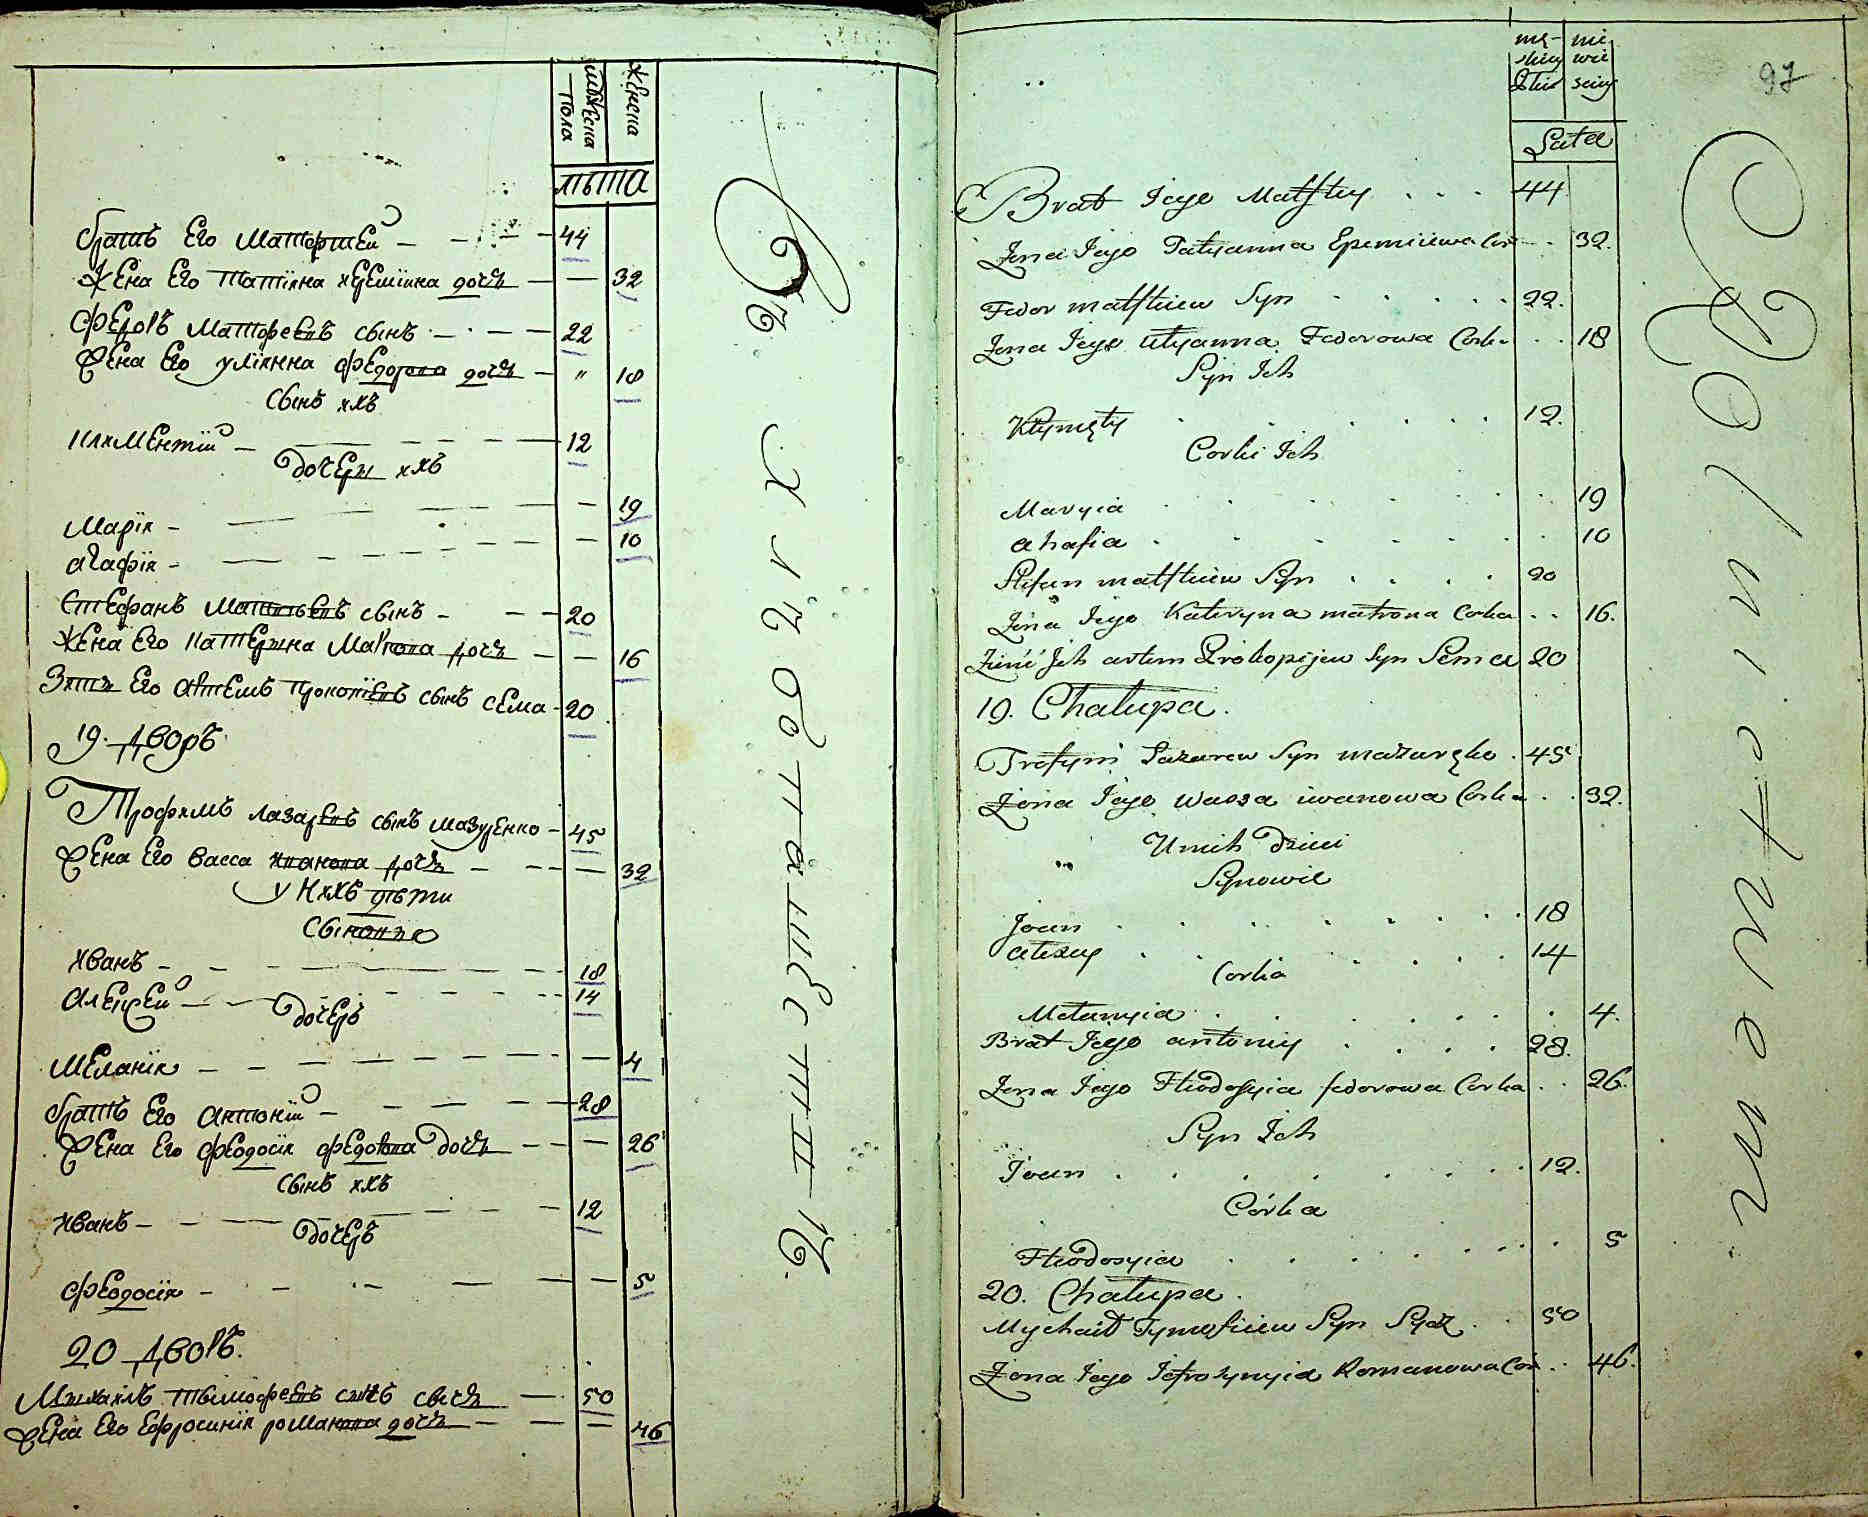 мужеска
пола
женска
лѣта
братъ Его Матѳфтей 44
Жена Его татіяна яремїина дочь 32
Федоръ Матфеевъ сынъ 22
Жена Его уліянна Федорова дочь 18
Сынъ ихъ
климентїй 12
дочери ихъ
Марїя 19
агафїя 10
Стефанъ Матвѣевъ сынъ 20
Жена Его катерина дочь 16
Зять Его Артемъ прокопїевъ сынъ сема 20
19. дворъ
Трофимъ лазаревъ сынъ мазуренко 45
Жена Его васса иванова дочь 32
у нихъ дѣти
Сыновья
иванъ 18
Алексей 14
дочеръ
Меланїя 4
братъ Его Антонїй 28
Жена Его феодосїя федорова дочь 26
сынъ ихъ
иванъ 12
дочеръ
феодосїя 5
20 дворъ
Михаилъ тимофеевъ сынъ сычь 50
Жена Его Ефросинїя романова дочь 46
97
Lata
Brat Jego Matftey 44
Zona Jego Tatyanna Cor 32.
Fedor matftiew Syn 22.
Zona Jego Ulyanna Fedorowa Corka 18
Syn Ich
Klymęty 12.
Corki Ich
Maryia 19
ahafia 10
Stefan matftiew Syn 20
Zona Jego Kateryna matrona Corka 16.
Zienć Ich artem Prokopijew Syn Sema 20
19. Chałupa.
Trofym Łazarew Syn mazuręko 45
Zona Jego Wassa iwanowa Corka 32.
U nich dzieci
Synowie
Joan 18
alexey 14
Corka
Melanyia 4.
Brat Jego antoniy 28.
Zona Jego Fteodosyia fedorowa Corka 26.
Syn Ich
Joan 12.
Córka
Fteodosyia 5
20. Chałupa.
Mychaił Tymofiiew Syn Sycz 50
Zona Jego Jefrosynyia Romanowa Cor 46.